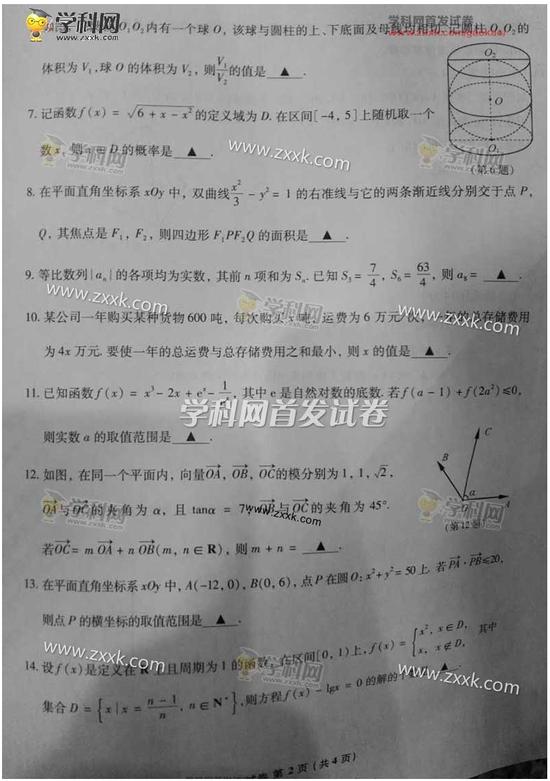 学科网 ZXXK.COM
学科网首发试卷
O₁O₂内有一个球O，该球与圆柱的上、下底面及母线均相切.记圆柱O₁O₂的
体积为V₁,球O的体积为V₂，则V₁/V₂的值是 ▲ .
O₂
O
O₁
(第6题)
7.记函数f(x) = √(6 + x - x²)的定义域为D.在区间[-4, 5]上随机取一个
数x，则x∈D的概率是 ▲ .
8.在平面直角坐标系xOy中，双曲线x²/3 - y² = 1的右准线与它的两条渐近线分别交于点P，
Q，其焦点是F₁，F₂，则四边形F₁PF₂Q的面积是 ▲ .
9.等比数列{aₙ}的各项均为实数，其前n项和为Sₙ.已知S₃ = 7/4，S₆ = 63/4，则a₈ = ▲ .
10.某公司一年购买某种货物600吨，每次购买x吨，运费为6万元/次，一年的总存储费用
为4x万元.要使一年的总运费与总存储费用之和最小，则x的值是 ▲ .
11.已知函数f(x) = x³ - 2x + eˣ - 1/eˣ，其中e是自然对数的底数.若f(a - 1) + f(2a²)≤0，
则实数a的取值范围是 ▲ .
12.如图，在同一个平面内，向量OA，OB，OC的模分别为1, 1, √2，
OA与OC的夹角为α，且tanα = 7，OB与OC的夹角为45°.
若OC = mOA + nOB(m, n∈R)，则m + n = ▲ .
C
B
α
A
(第12题)
13.在平面直角坐标系xOy中，A(-12, 0)，B(0, 6)，点P在圆O: x²+y² = 50上.若PA·PB≤20，
则点P的横坐标的取值范围是 ▲ .
14.设f(x)是定义在R上且周期为1的函数，在区间[0, 1)上，f(x) = { x², x∈D, x, x∉D, 其中
集合D = {x | x = (n-1)/n, n∈N*}，则方程f(x) - lgx = 0的解的个数是 ▲ .
第2页（共4页）
www.zxxk.com
学科网首发试卷